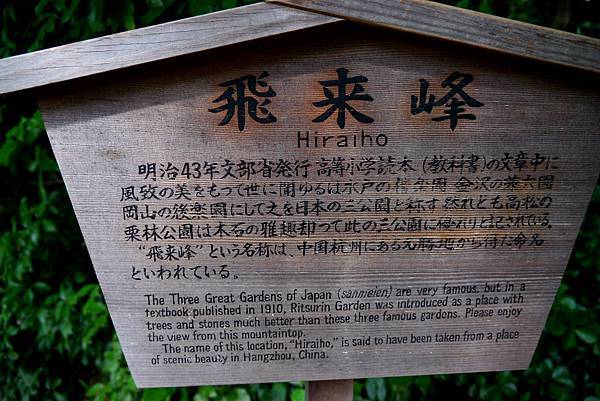 飛来峰
Hiraiho
明治43年文部省発行 高等小学読本 (教科書)の文章中に
風致の美をもって世に聞ゆるは水戸の偕楽園 金沢の兼六園
岡山の後楽園にして之を日本の三公園と称す 然れとも高松の
栗林公園は木石の雅趣却って此の三公園に優れりと記されている。
“飛来峰”という名称は、中国杭州にある名勝地から得た命名
といわれている。
The Three Great Gardens of Japan (sanmeien) are very famous, but in a
textbook published in 1910, Ritsurin Garden was introduced as a place with
trees and stones much better than these three famous gardens. Please enjoy
the view from this mountaintop.
The name of this location, “Hiraiho,” is said to have been taken from a place
of scenic beauty in Hangzhou, China.